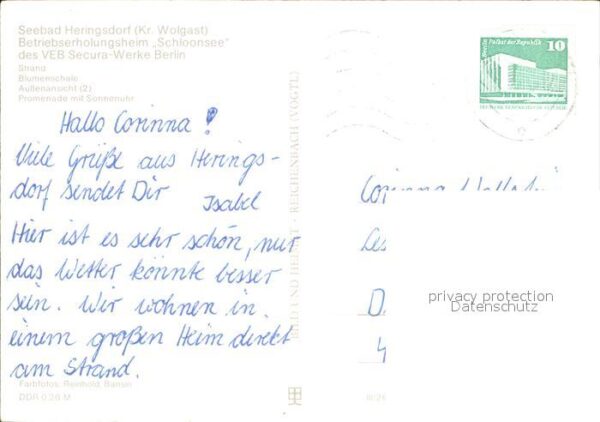 Seebad Heringsdorf (Kr. Wolgast)
Betriebserholungsheim „Schloonsee"
des VEB Secura-Werke Berlin
Strand
Blumenschale
Außenansicht (2)
Promenade mit Sonnenuhr
Hallo Corinna!
Viele Grüße aus Herings-
dorf sendet Dir
Isabel
Hier ist es sehr schön, nur
das Wetter könnte besser
sein. Wir wohnen in
einem großen Heim direkt
am Strand.
Farbfotos: Reinhold, Bansin
DDR 0,20 M
BILD UND HEIMAT · REICHENBACH (VOGTL)
Berlin Palast der Republik 10
DEUTSCHE DEMOKRATISCHE REPUBLIK
Corinna
D
4
privacy protection
Datenschutz